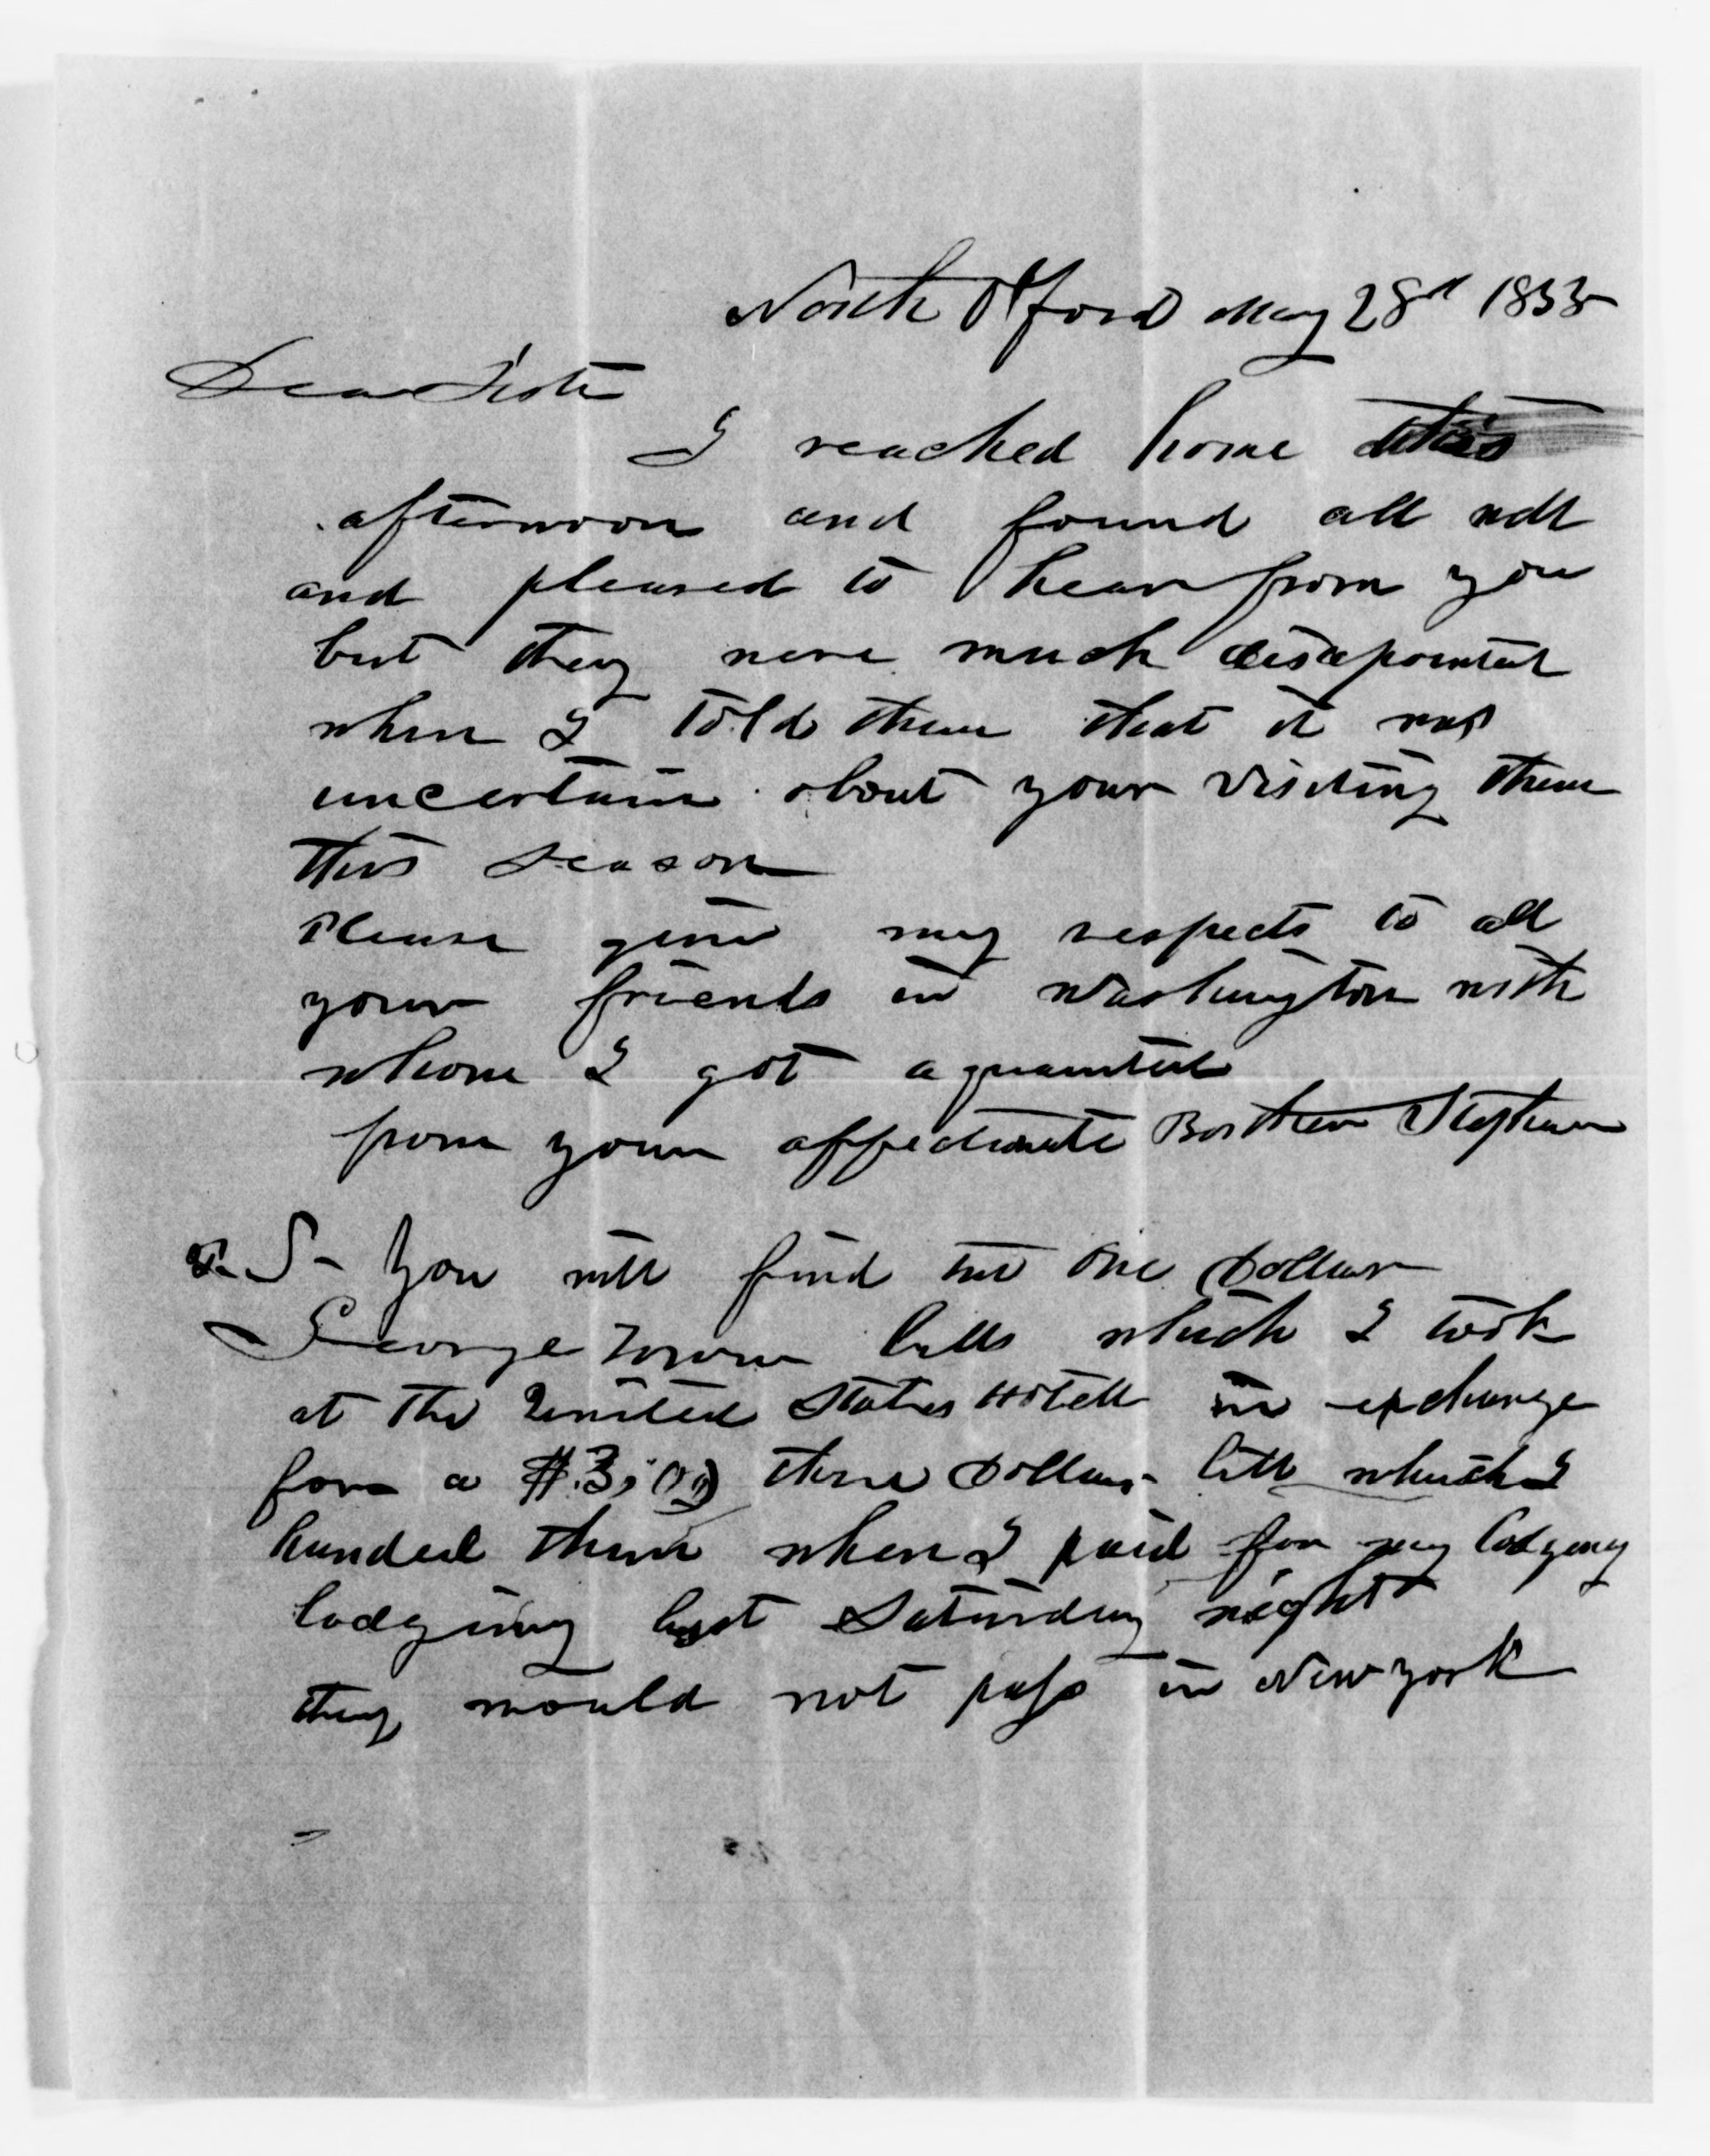 North Oxford May 28th 1855
Dear Sister
I reached home this
afternoon and found all well
and pleased to hear from you
but they were much disapointed
when I told them that it was
uncertain about your visiting them
this season
Please give my respects to all
your friends in Washington with
whom I got aquainted
from your affectionate Borther Stephen
P.S- You will find two one Dollar
George Town bills which I took
at the United States Hotell in exchange
for a $.3,00 three Dollar bill which I
handed them when I paid for my lodging
lodging last Saturday night
they would not pass in New york